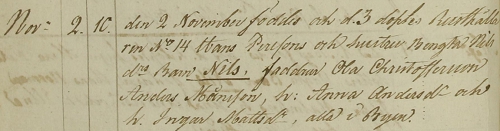 Nov: 2. 10. den 2 November foddes och d. 3 doptes Rusthålla
ren No 14 Hans Perssons och hustru Bengta Nils
drs Barn Nils, faddrar Ola Christoffersson
Anders Månsson, h: Anna Andersdr och
h. Ingar Mattsdr, alla i Byen.